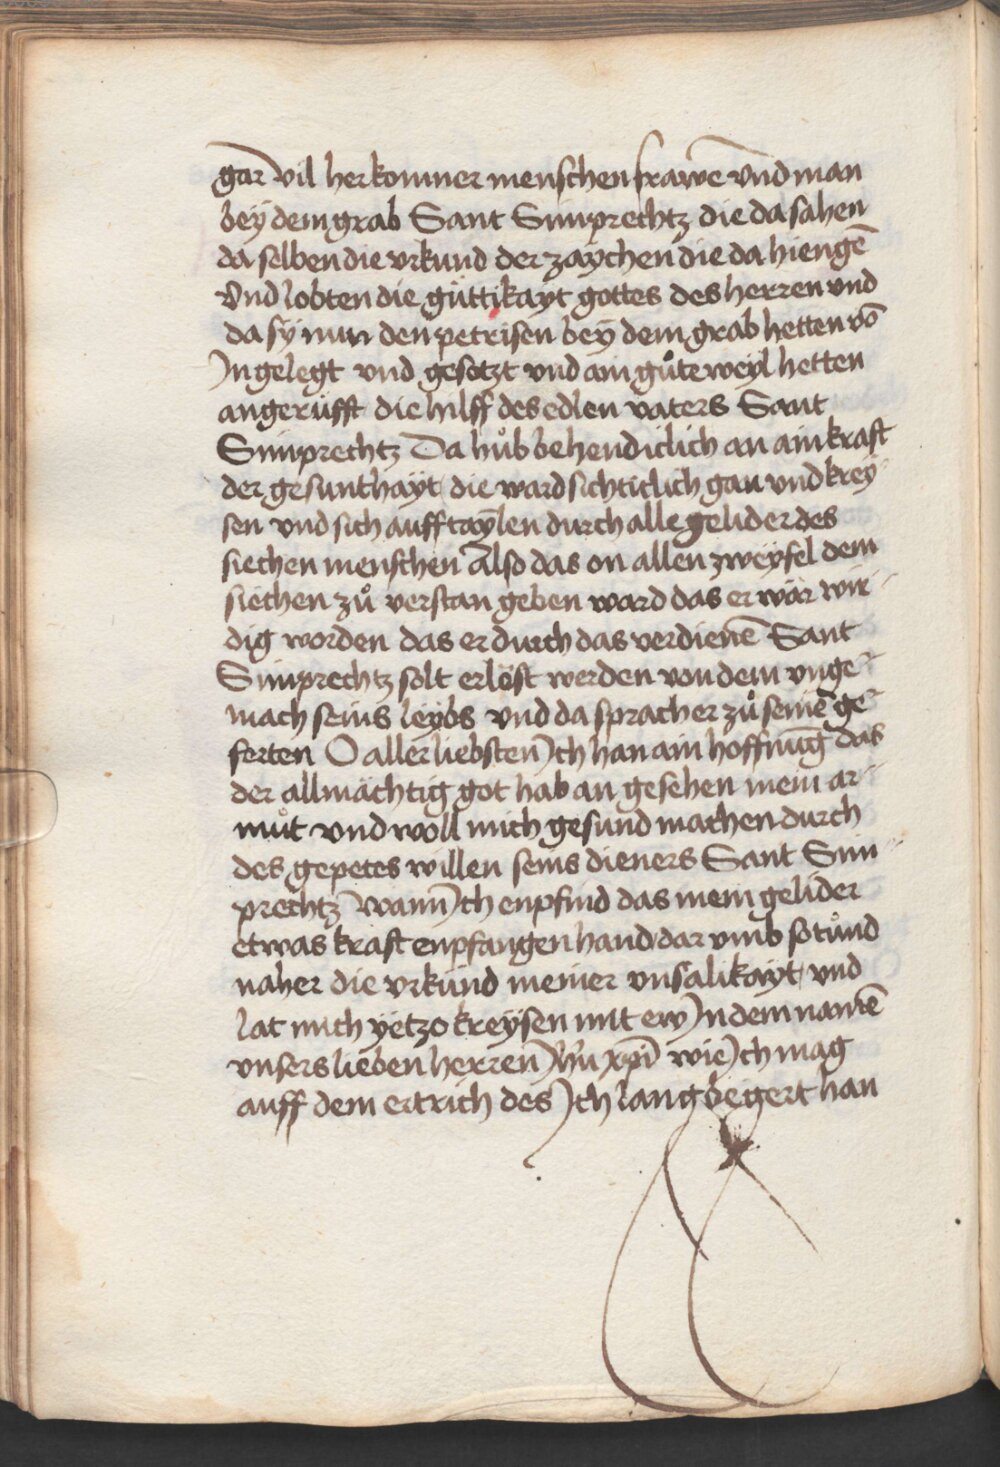 gar vil her komner menschen frawē vnd man
bey dem grab Sant Simprechtz die da sahen
da selben die vrkund der zaychen die da hiengē
Vnd lobten die güttikayt gottes des herren vnd
da sy nun den petrisen bey dem grab hetten vō
In gelegt vnd gesetzt vnd ain gůte weyl hetten
angerüfft die hilff des edlen vaters Sant
Simprechtz Da hůb behendiclich an ain kraft
der gesunthayt die ward sichticlich gan vnd krey
sen vnd sich auff taylen durch alle gelider des
siechen menschen Also das on allen zweyfel dem
siechen zů verstan geben ward das er wär wir
dig worden das er durch das verdienē Sant
Simprechtz solt erlöst werden von dem vnge
mach seins leybs vnd da sprach er zů seinē ge
ferten O aller liebsten Ich han ain hoffnūg das
der allmächtig got hab an gesehen mein ar
můt vnd woll mich gesund machen durch
des gepetes willen seins dieners Sant Sim
prechtz wann Ich enpfind das mein gelider
etwas kraft enpfangen hand dar vmb so tůnd
naher die vrkünd meiner vnsälikayt vnd
lat mich yetzo kreysen mit ew In dem namē
vnsers lieben herren Ihū xpī wie Ich mag
auff dem ertrich des Ich lang begert han